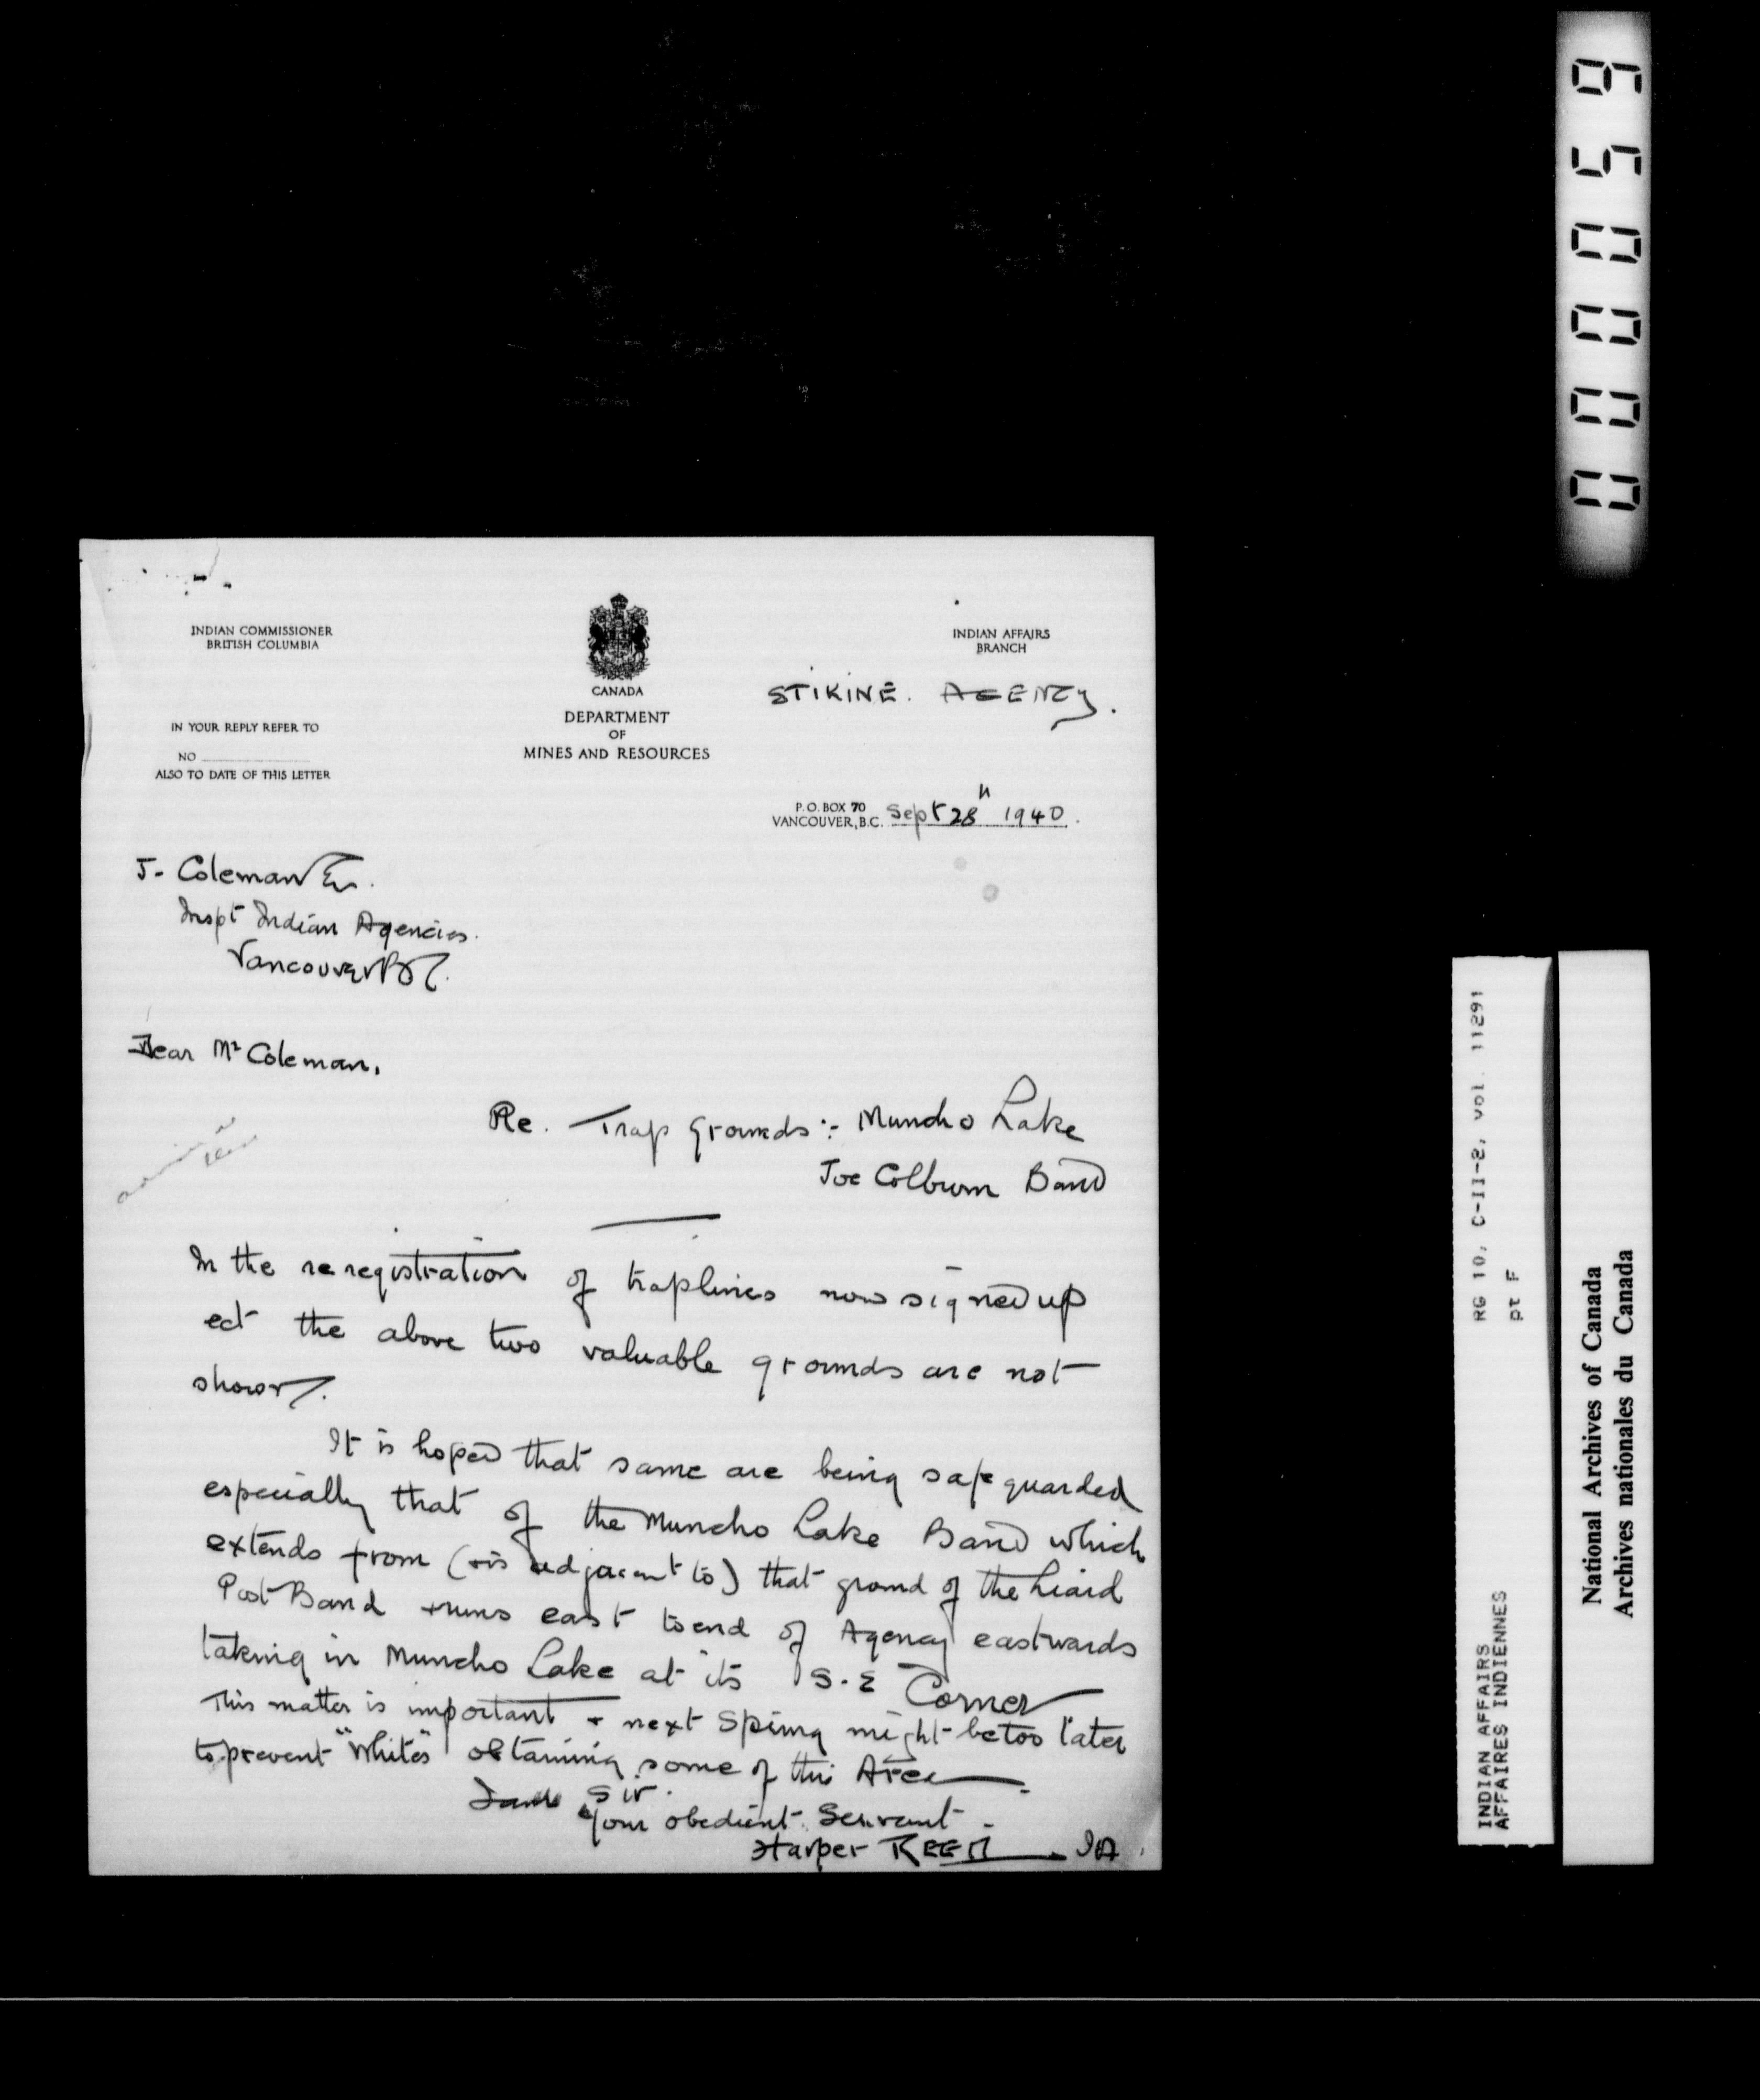 INDIAN COMMISSIONER
BRITISH COLUMBIA
IN YOUR REPLY REFER TO
NO
ALSO TO DATE OF THIS LETTER
CANADA
DEPARTMENT
OF
MINES AND RESOURCES
INDIAN AFFAIRS
BRANCH
STIKINE. AGENCY.
P.O. BOX 70
VANCOUVER, B.C. Sept 28" 1940.
J. Coleman Esq.
Inspt Indian Agencies.
Vancouver BC.
Dear Mr Coleman,
Re. Trap Grounds :- Muncho Lake
Joe Colburn Band
In the reregistration of traplines now signed up
ect the above two valuable grounds are not
shown.
It is hoped that same are being safeguarded
especially that of the Muncho Lake Band which
extends from (+is adjacent to) that ground of the Liard
Post Band +runs east to end of Agency eastwards
taking in Muncho Lake at its S.E Corner
This matter is important + next Spring might be too later
to prevent "Whites" obtaining some of this Area.
I am Sir.
Your obedient Servant.
Harper REED IA.
000059
RG 10, C-II-2, vol. 11291
pt F
INDIAN AFFAIRS
AFFAIRES INDIENNES
National Archives of Canada
Archives nationales du Canada